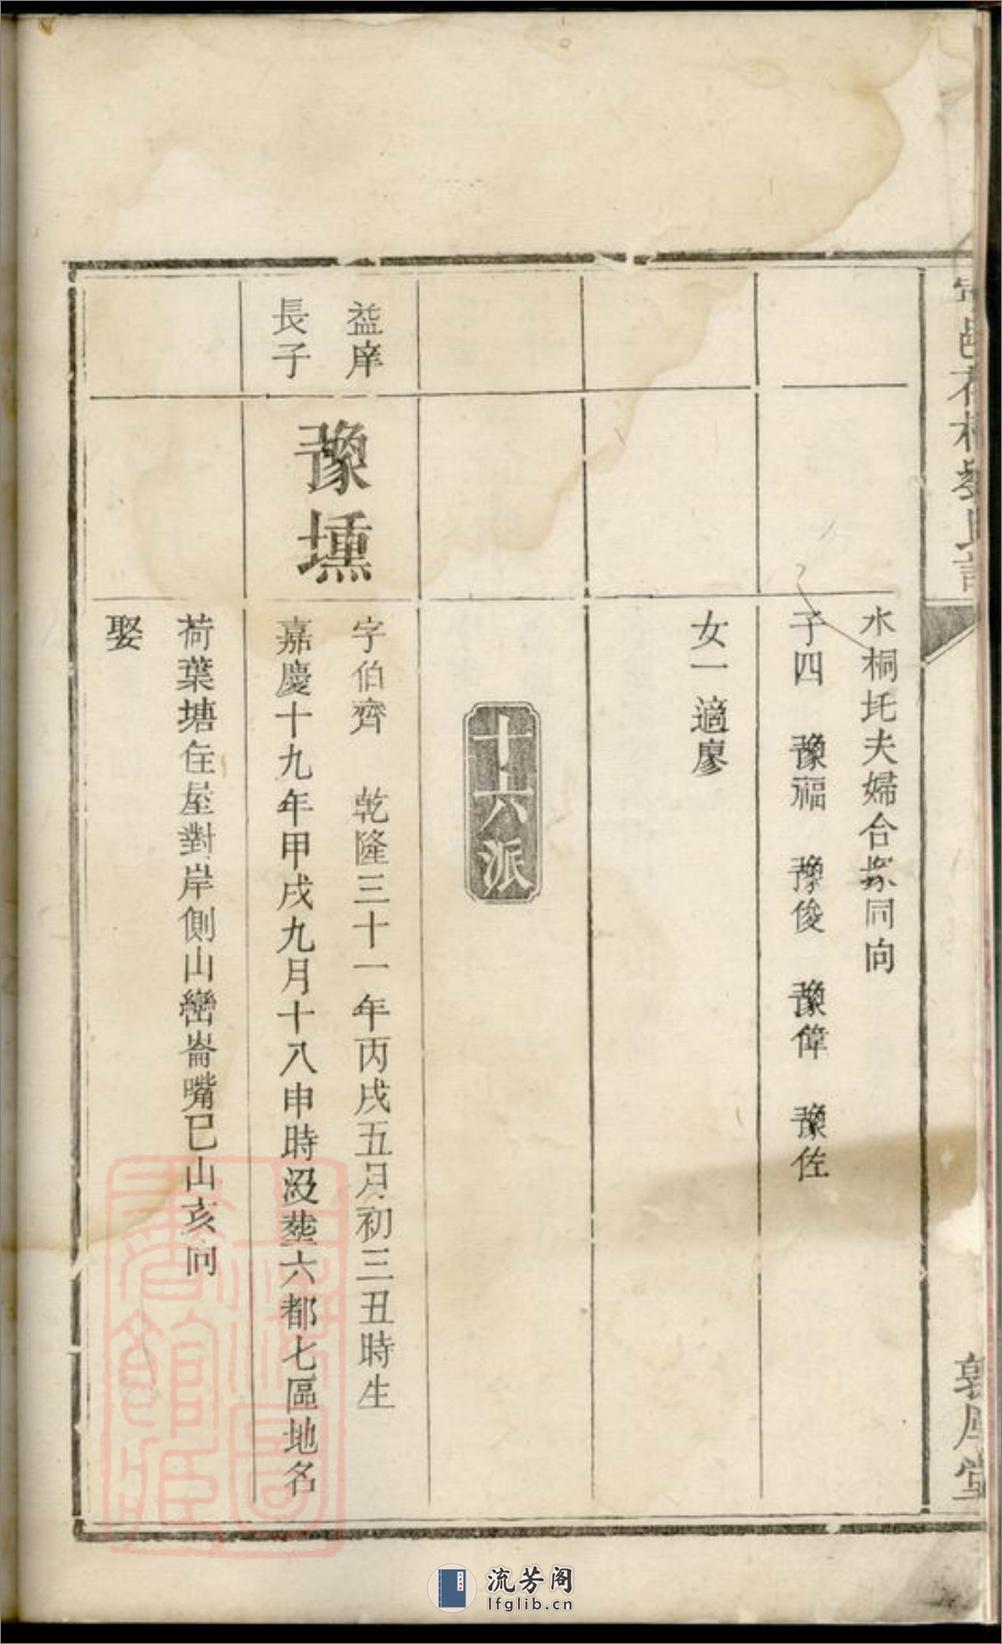 水桐圫夫婦合塚同向
子四　豫福　豫俊　豫偉　豫佐
女一適廖
十六派
益庠
長子
豫壎
字伯齊　乾隆三十一年丙戌五月初三丑時生
嘉慶十九年甲戌九月十八申時沒塟六都七區地名
荷葉塘住屋對岸側山巒崙嘴巳山亥向
娶
上海圖
書館藏
流芳阁
lfglib.cn